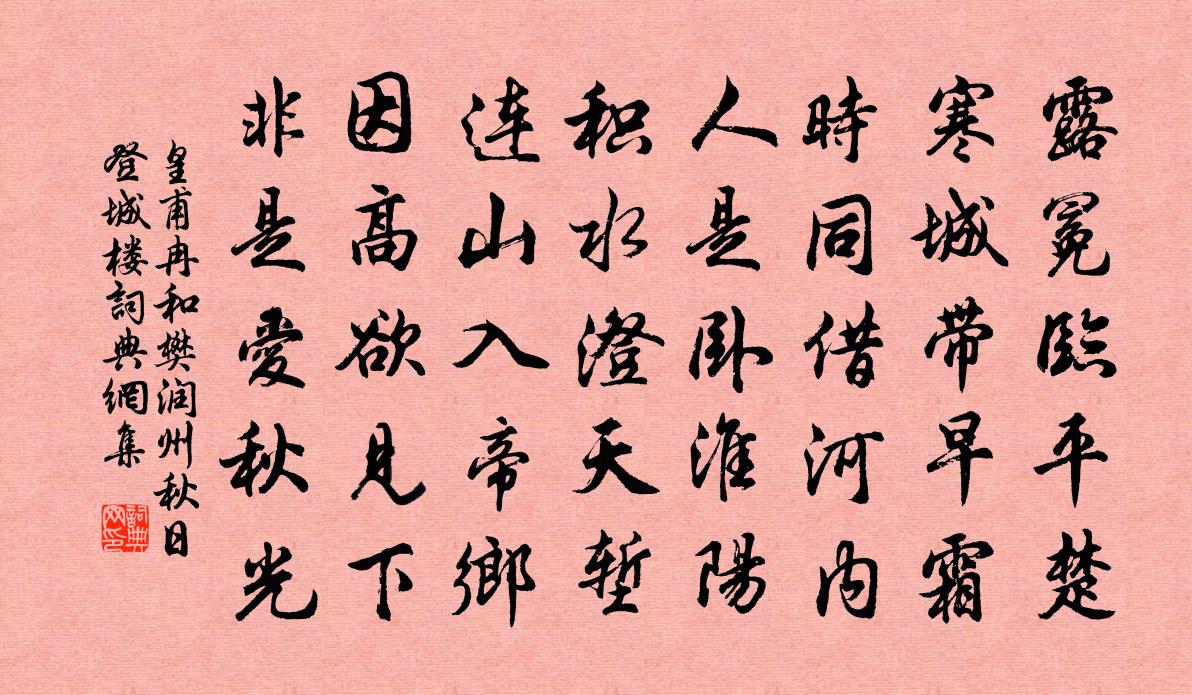 露冕臨平楚
寒城带早霜
時同借河内
人是卧淮陽
积水澄天堑
連山入帝鄉
因高欲见下
非是愛秋光
皇甫冉和樊润州秋日
登城楼詞典網集
詞典网印